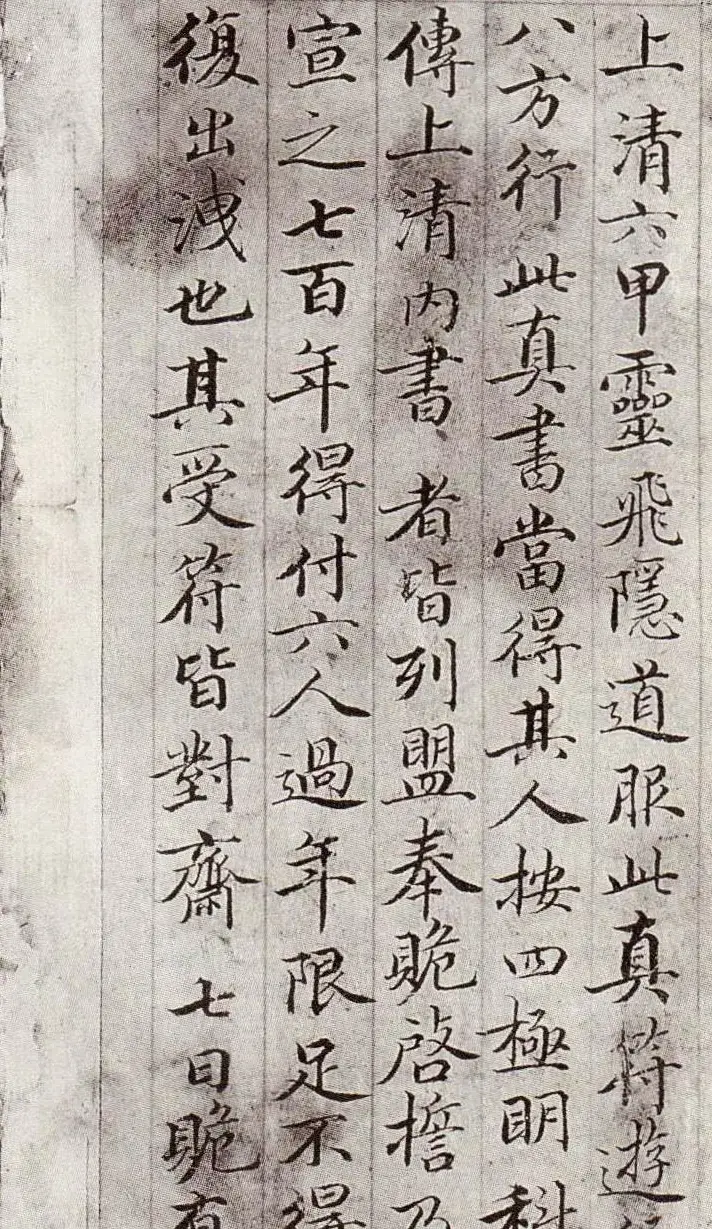 上清六甲靈飛隱道服此真符遊
八方行此真書當得其人按四極明科
傳上清內書者皆列盟奉跪啓擔乃
宣之七百年得付六人過年限足不得
復出洩也其受符皆對齋七日跪有